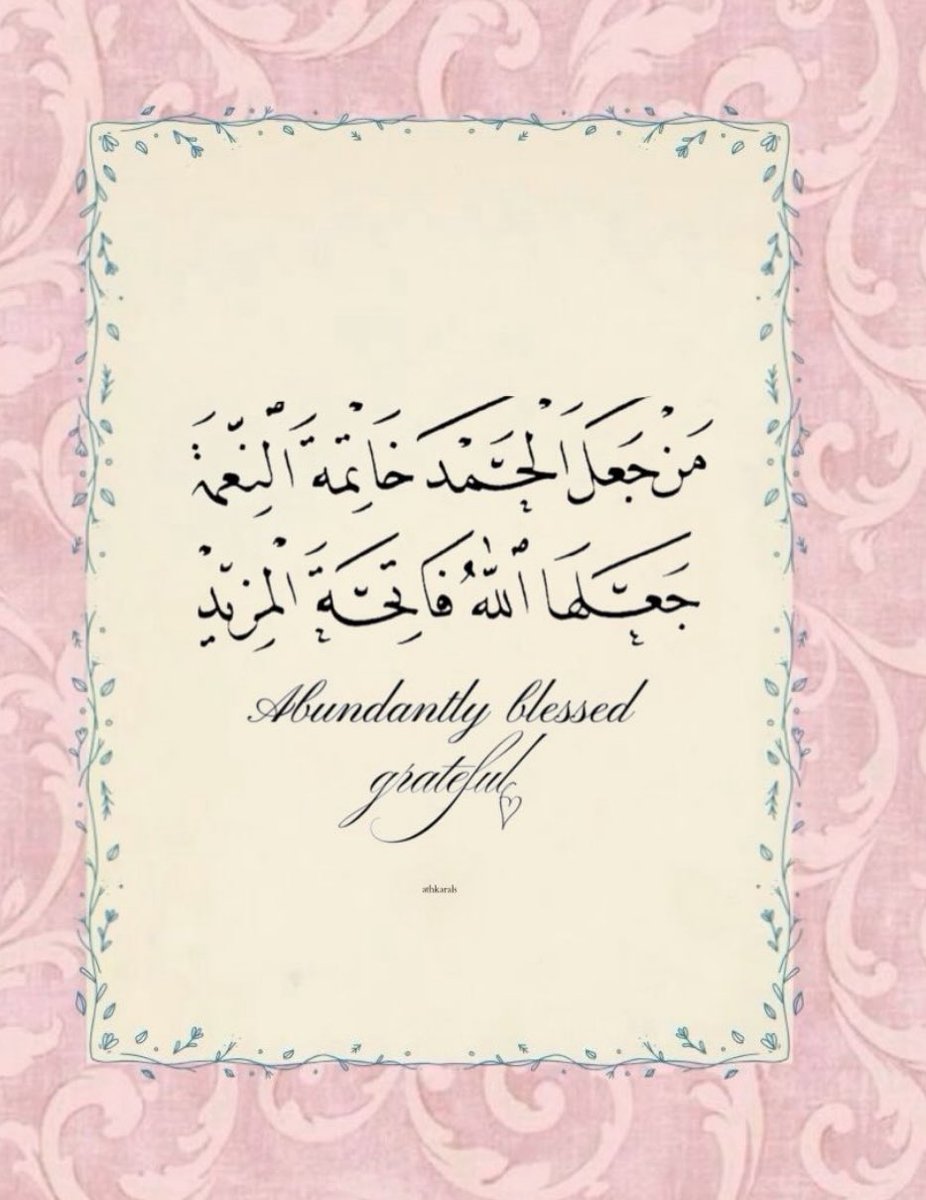 مَنْ جَعَلَ الْحَمْدَ خَاتِمَةَ النِّعْمَةِ
جَعَلَهَا اللّٰهُ فَاتِحَةَ الْمَزِيدْ
Abundantly blessed
grateful
athkarals